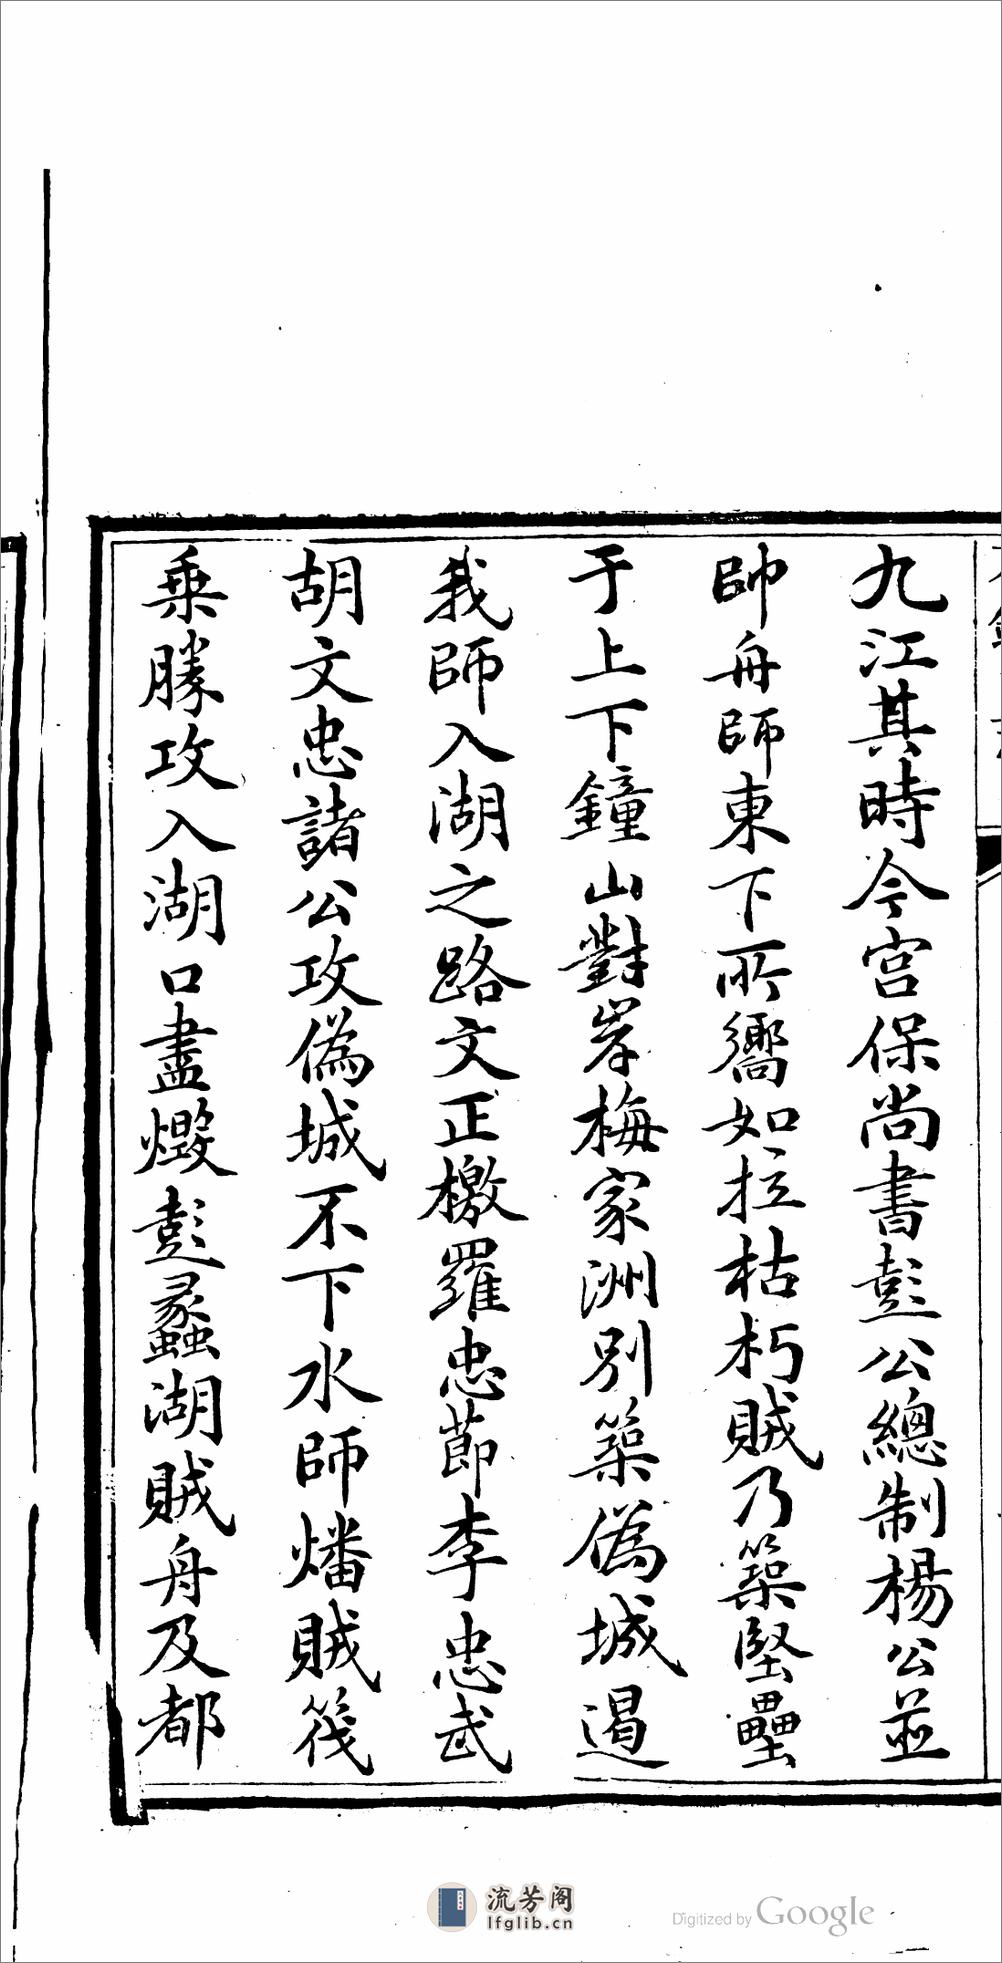 九江其時今宮保尚書彭公總制楊公並
帥舟師東下所嚮如拉枯朽賊乃築堅壘
于上下鐘山對岸梅家洲別築偽城遏
我師入湖之路文正檄羅忠節李忠武
胡文忠諸公攻偽城不下水師燔賊筏
乘勝攻入湖口盡燬彭蠡湖賊舟及都
流芳阁
lfglib.cn
Digitized by Google